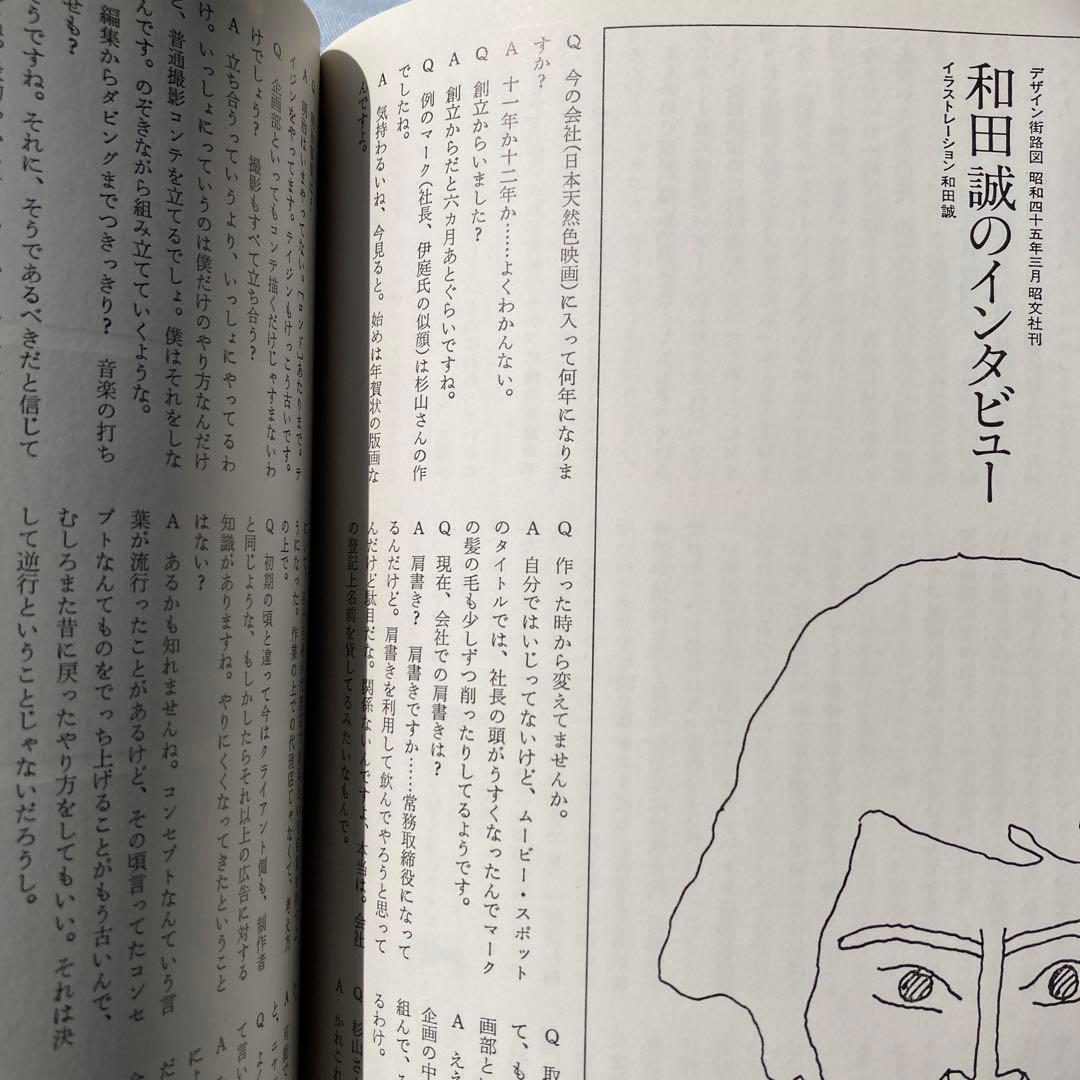 デザイン街路図 昭和四十五年三月 昭文社刊
和田誠のインタビュー
イラストレーション 和田誠
Q 今の会社(日本天然色映画)に入って何年になりま
すか?
A 十一年か十二年か……よくわかんない。
Q 創立からいました?
A 創立からだと六ヵ月あとぐらいですね。
Q 例のマーク(社長、伊庭氏の似顔)は杉山さんの作
でしたね。
A 気持わるいね、今見ると。始めは年賀状の版画な
んですよ。
Q 作った時から変えてませんか。
A 自分ではいじってないけど、ムービー・スポット
のタイトルでは、社長の頭がうすくなったんでマーク
の髪の毛も少しずつ削ったりしてるようです。
Q 現在、会社での肩書きは?
A 肩書き? 肩書きですか……常務取締役になって
るんだけど。肩書きを利用して飲んでやろうと思って
んだけど駄目だな。関係ないんですよ、本当は。会社
の登記上名前を貸してるみたいなもんで。
Q 取
て、も
画部と
A ええ
企画の中
組んで、
るわけ。
Q 杉山さ
A かれこれ
A 明治はいまやってない。「ロンド」あたりまで。テ
イジンをやってます。テイジンもけっこう古いです。
Q 企画部といってもコンテ描くだけじゃすまないわ
けでしょう? 撮影もすべて立ち合う?
A 立ち合うっていうより、いっしょにやってるわ
け。いっしょにっていうのは僕だけのやり方なんだけ
ど、普通撮影コンテを立てるでしょ。僕はそれをしな
んです。のぞきながら組み立てていくような。
編集からダビングまでつきっきり? 音楽の打ち
せも?
そうですね。それに、そうであるべきだと信じて
うになった。作業の上での代理店じゃなくて、考え方
の上で。
Q 初期の頃と違って今はクライアント側も、制作者
と同じような、もしかしたらそれ以上の広告に対する
知識がありますね。やりにくくなってきたということ
はない?
A あるかも知れませんね。コンセプトなんていう言
葉が流行ったことがあるけど、その頃言ってたコンセ
プトなんてものをでっち上げることがもう古いんで、
むしろまた昔に戻ったやり方をしてもいい。それは決
して逆行ということじゃないだろうし。